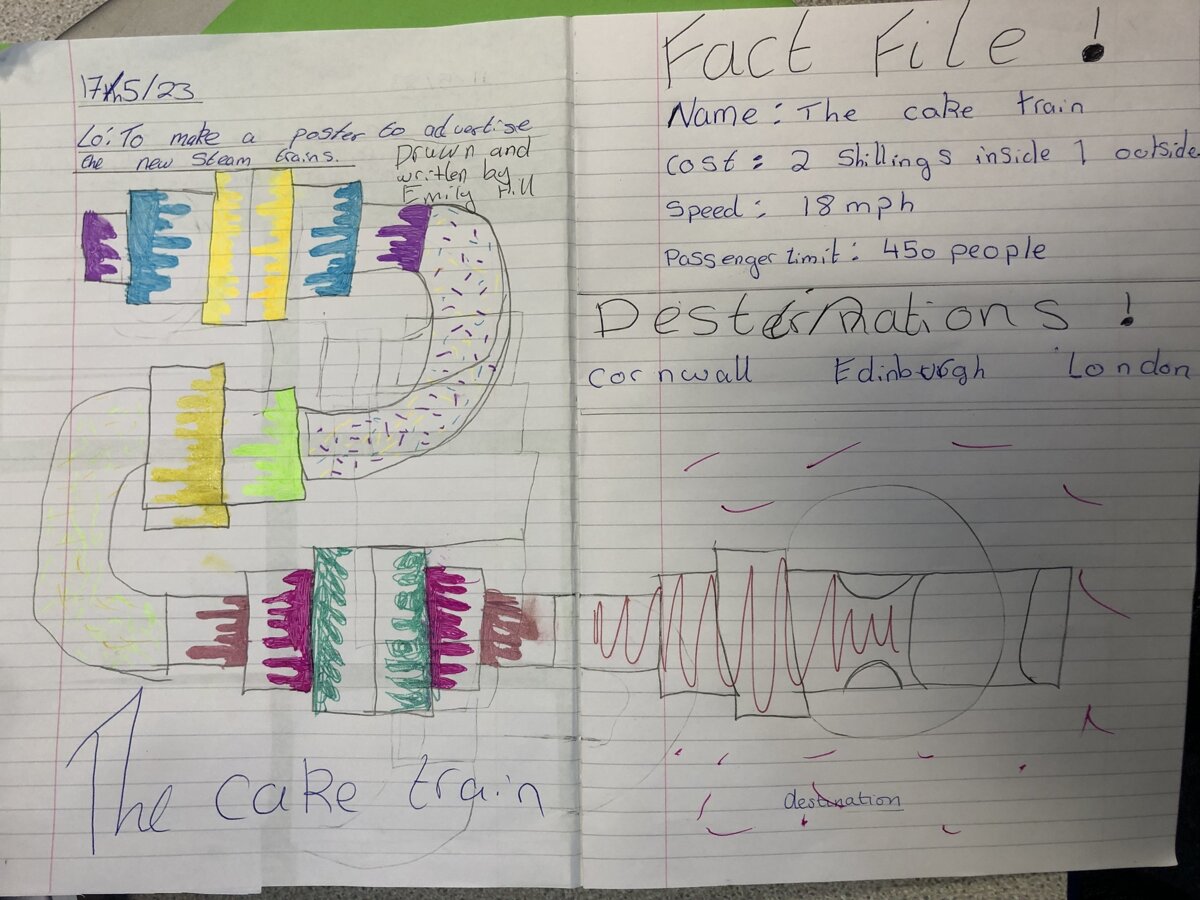 17/5/23
Lo: To make a poster to advertise
the new steam trains.
Drawn and
written by
Emily Hill
The cake train
Fact File !
Name: The cake train
cost: 2 shillings inside 1 outside
speed: 18 mph
Passenger limit: 450 people
Destinations !
Cornwall Edinburgh London
destination